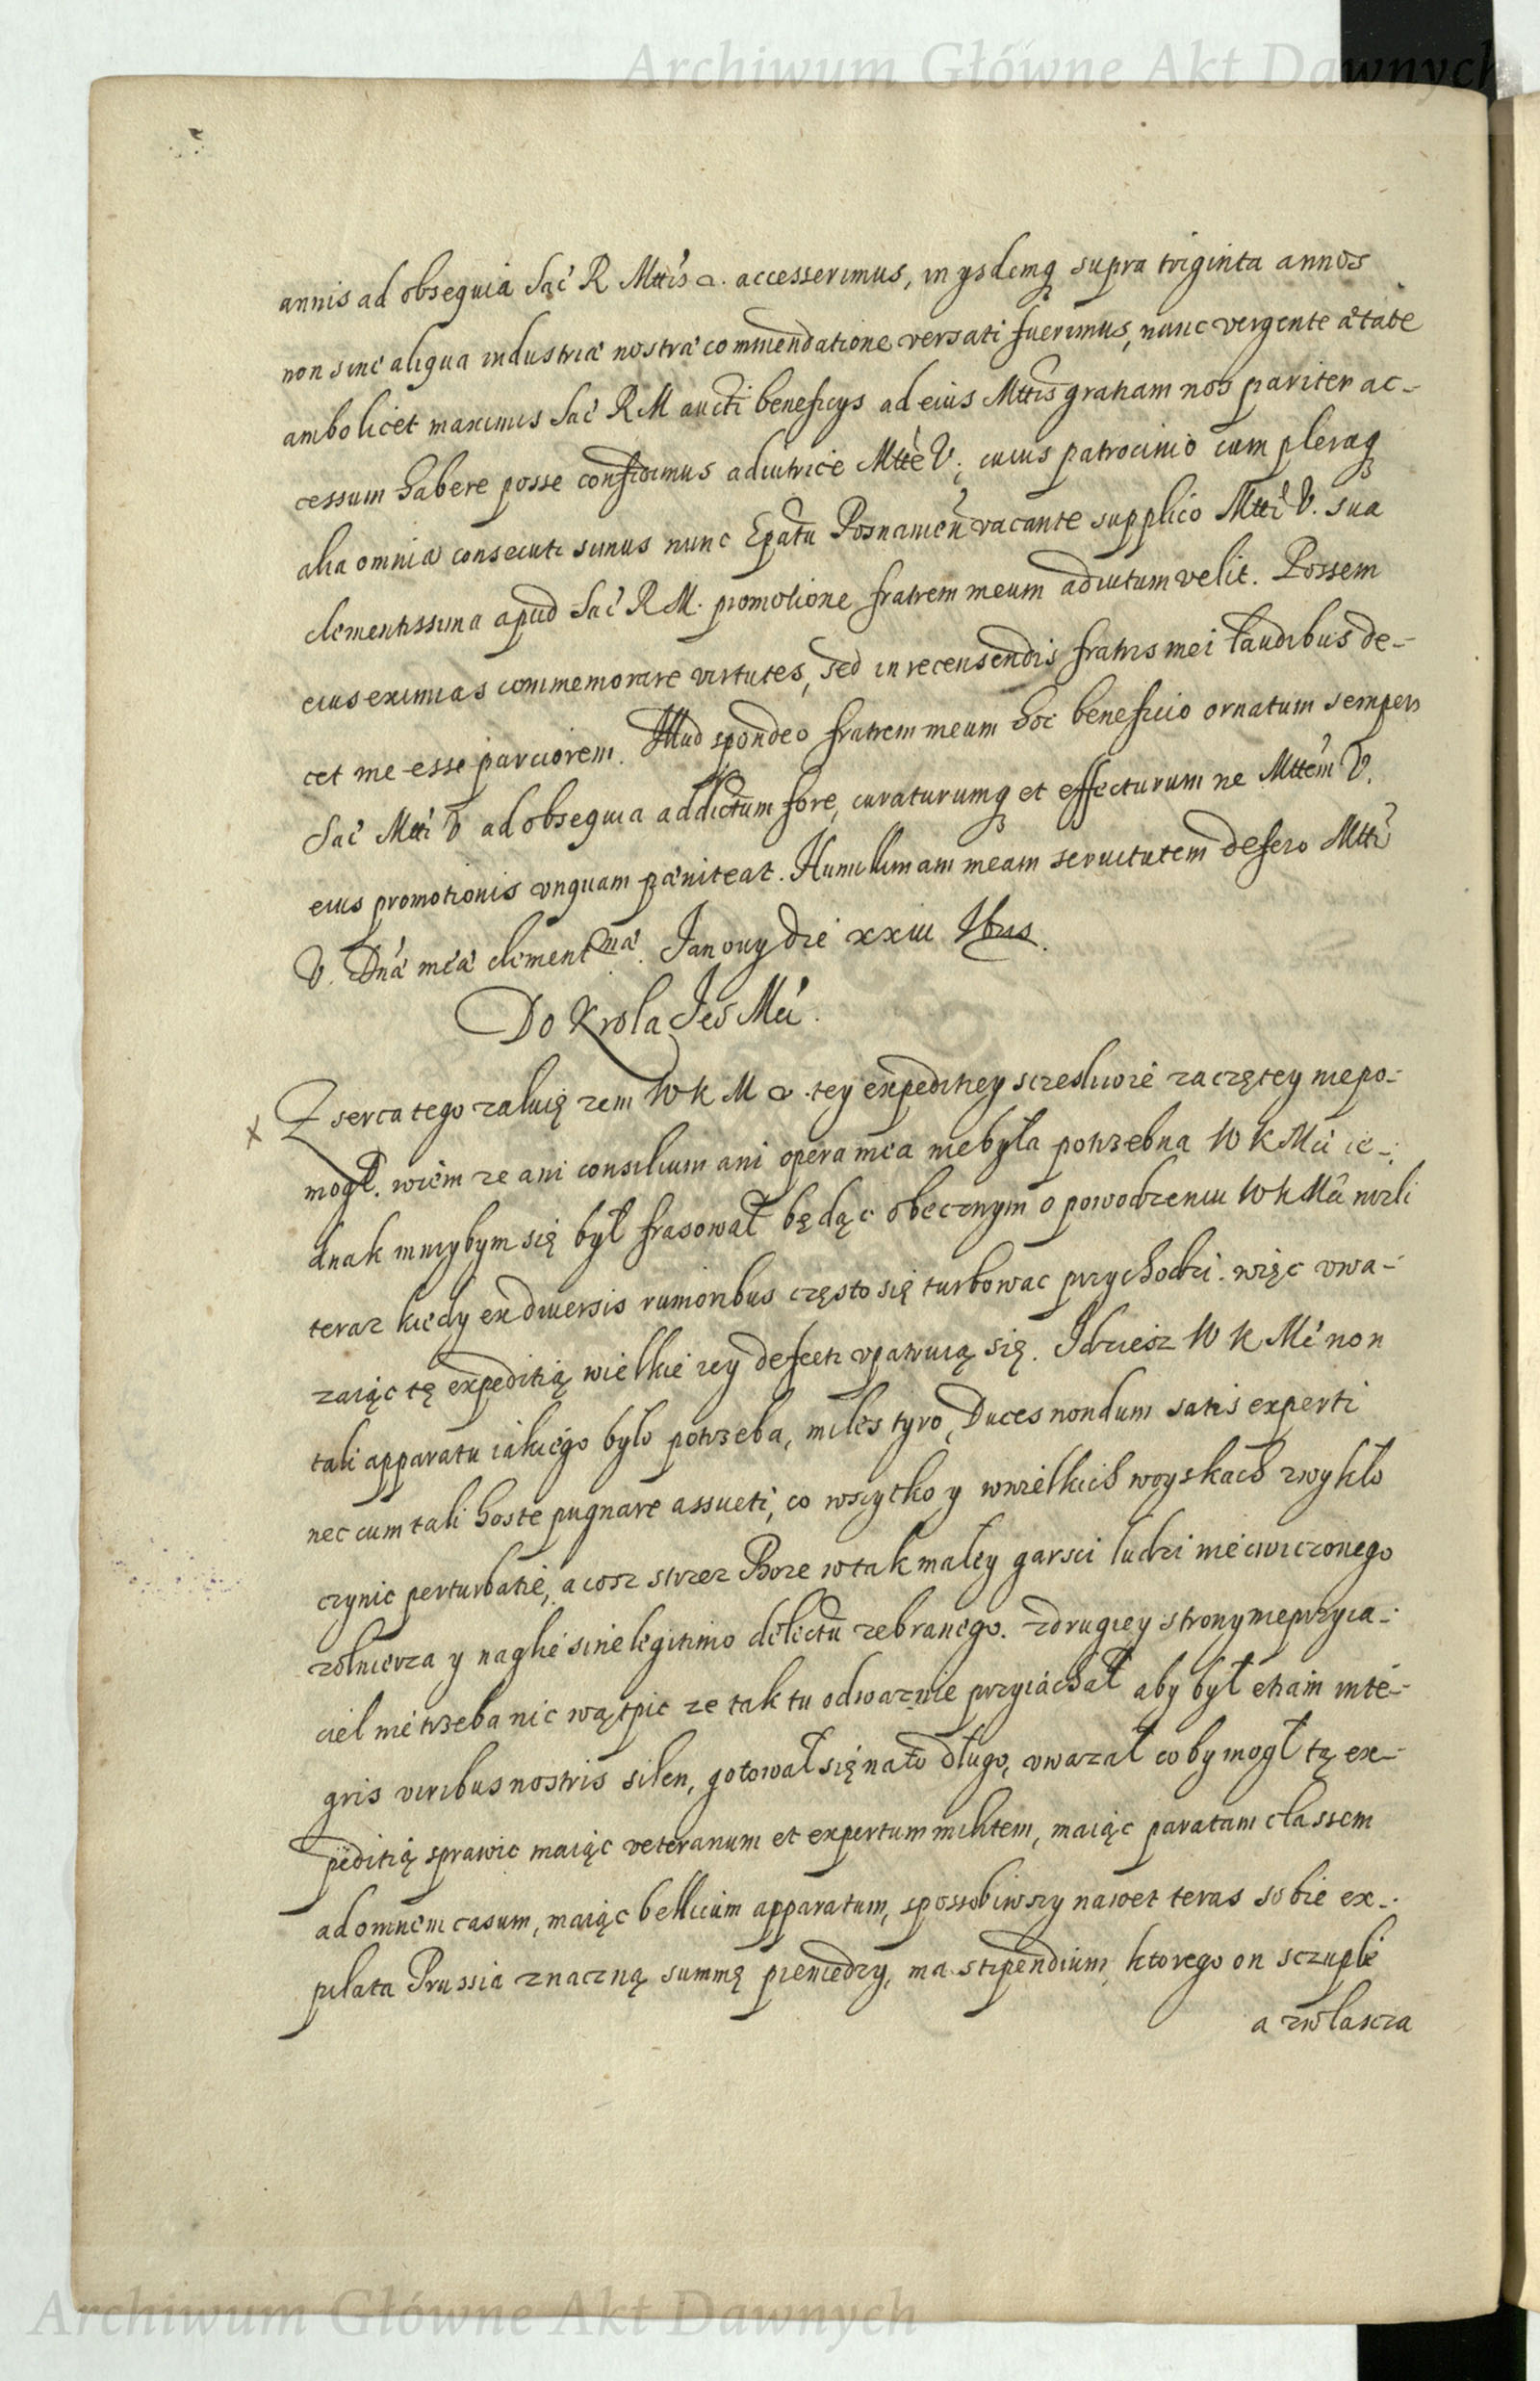 Archiwum Główne Akt Dawnych
annis ad obsequia Sac̃ R Mttis &. accesserimus, in ysdemq supra triginta annos
non sine aliqua industriæ nostræ commendatione versati fuerimus, nunc vergente ætate
ambo licet maximis Sac̃ R M aucti beneficys ad eius Mttis gratiam nos pariter ac-
cessum habere posse confidimus adiutrice Mtte V; cuius patrocinio cum pleraq
alia omnia consecuti simus nunc Epatu Posnanien vacante supplico Mtti V. sua
clementissima apud Sac̃ R M. promotione fratrem meum adiutum velit. Possem
eius eximias commemorare virtutes, sed in recensendis fratris mei laudibus de-
cet me esse parciorem. Illud spondeo fratrem meum hoc beneficio ornatum semper
Sac̃ Mtti V ad obsequia addictum fore, curaturumq et effecturum ne Mttem V.
eius promotionis vnquam pæniteat. Humillimam meam seruitutem defero Mtti
V. Dnæ meæ clement mæ. Ianouy die xxiii
Do Krola Jeo Mći.
Z serca tego załuię zem W K M &. tey expeditiey sczesliwie zaczętey niepo-
mogł. wiem ze ani consilium ani opera mea niebyła potrzebna W K Mći ie-
dnak mnieybym się był frasował będąc obecznym o powodzeniu W K Mći nizli
teraz kiedy ex diuersis rumoribus często się turbowac przychodzi. więc vwa-
zaiąc tę expeditią wielkie iey defecti vpatruią się. Idziesz W K Mć non
tali apparatu iakiego było potrzeba, miles tyro, Duces nondum satis experti
nec cum tali hoste pugnare assueti, co wszytko y wwielkich woyskach zwykło
czynic perturbatie, a cosz strzez Boze w tak małey garsci ludzi niecwiczonego
zołnierza y nagłie sine legitimo delectu zebranego. Zdrugiey strony nieprzyia-
ciel nie trzeba nic wątpic ze tak tu odwaznie przyiachał aby był etiam inte-
gris viribus nostris silen, gotował się na to długo, vwazał co by mogł tą ex-
peditią sprawic maiąc veteranum et expertum militem, maiąc paratam classem
ad omnem casum, maiąc bellicum apparatum, sposobiwszy nawet teras sobie ex-
pilata Prussia znaczną summę pieniedzy, ma stipendium, ktorego on sczuplie
a zwłascza
Archiwum Główne Akt Dawnych